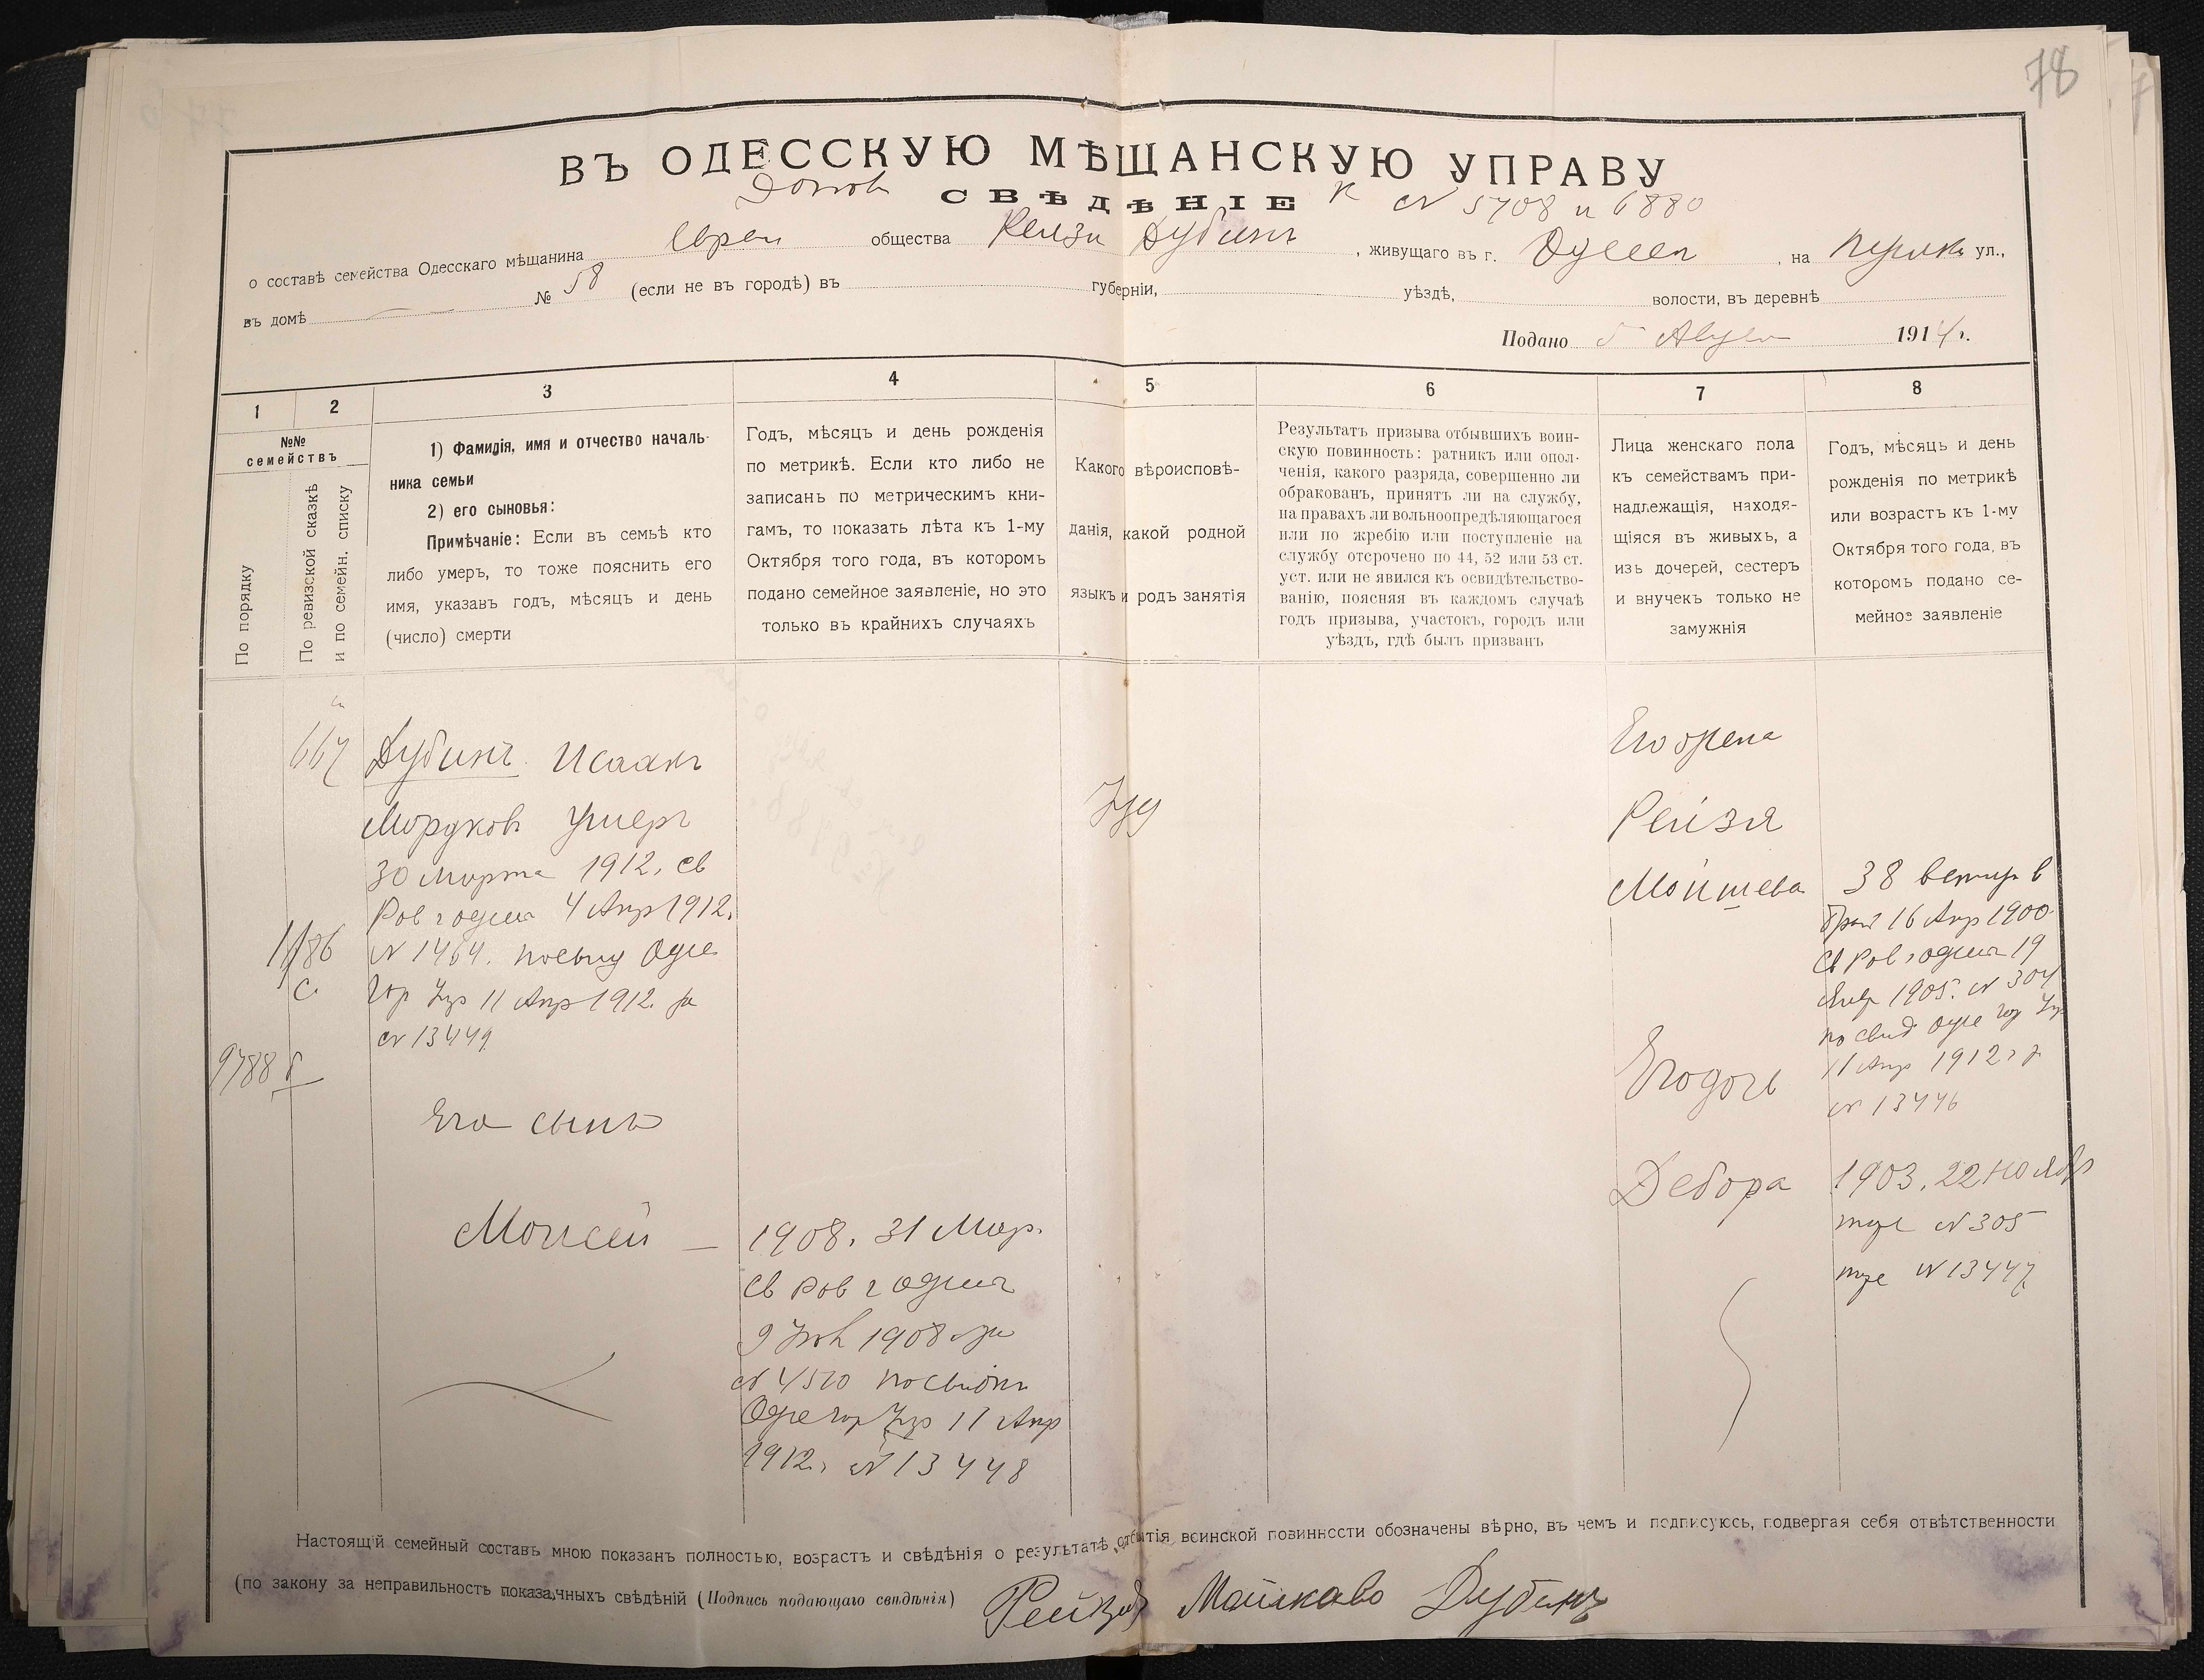 78
ВЪ ОДЕССКУЮ МѢЩАНСКУЮ УПРАВУ
СВѢДѢНІЕ
к № 5708 и 6880
о составѣ семейства Одесскаго мѣщанина Евреи общества Рейзи Дубинъ, живущаго въ г. Одессѣ, на ул.,
въ домѣ № 58 (если не въ городѣ) въ губерніи, уѣздѣ, волости, въ деревнѣ
Подано 5 Авг 1914 г.
1 2 3 4 5 6 7 8
№№ семействъ
По порядку
По ревизской сказкѣ
и по семейн. списку
1) Фамилія, имя и отчество началь-
ника семьи
2) его сыновья:
Примѣчаніе: Если въ семьѣ кто
либо умеръ, то тоже пояснить его
имя, указавъ годъ, мѣсяцъ и день
(число) смерти
Годъ, мѣсяцъ и день рожденія
по метрикѣ. Если кто либо не
записанъ по метрическимъ кни-
гамъ, то показать лѣта къ 1-му
Октября того года, въ которомъ
подано семейное заявленіе, но это
только въ крайнихъ случаяхъ
Какого вѣроисповѣ-
данія, какой родной
языкъ и родъ занятія
Результатъ призыва отбывшихъ воин-
скую повинность: ратникъ или опол-
ченія, какого разряда, совершенно ли
обракованъ, принятъ ли на службу,
на правахъ ли вольноопредѣляющагося
или по жребію или поступленіе на
службу отсрочено по 44, 52 или 53 ст.
уст. или не явился къ освидѣтельство-
ванію, поясняя въ каждомъ случаѣ
годъ призыва, участокъ, городъ или
уѣздъ, гдѣ былъ призванъ
Лица женскаго пола
къ семействамъ при-
надлежащія, находя-
щіяся въ живыхъ, а
изъ дочерей, сестеръ
и внучекъ только не
замужнія
Годъ, мѣсяцъ и день
рожденія по метрикѣ
или возрастъ къ 1-му
Октября того года, въ
которомъ подано се-
мейное заявленіе
667
1186
с
9788
Дубинъ Исаакъ
Мордковъ умеръ
30 марта 1912. св
Рав г одессы 4 Апр 1912.
№ 1464. Одес
Гор 11 Апр 1912. за
№ 13449
Его сынъ
Моисей
1908. 31 Мар.
св Рав г Одессы
9 1908 за
№ 4520 по свид
Одес гор 11 Апр
1912. № 13448
Іуд
Его жена
Рейзя
Мойшева
Его дочь
Дебора
38
брак 16 Апр 1900
св Рав г одессы 19
Янв 1905. № 304
по свид Одес гор
11 Апр 1912 г за
№ 13446
1903. 22 ноябр
тоже № 305
тоже № 13447
Настоящій семейный составъ мною показанъ полностью, возрастъ и свѣдѣнія о результатѣ отбытія воинской повинности обозначены вѣрно, въ чемъ и подписуюсь, подвергая себя отвѣтственности
(по закону за неправильность показачныхъ свѣдѣній (Подпись подающаго свѣдѣнія) Рейзя Дубинъ